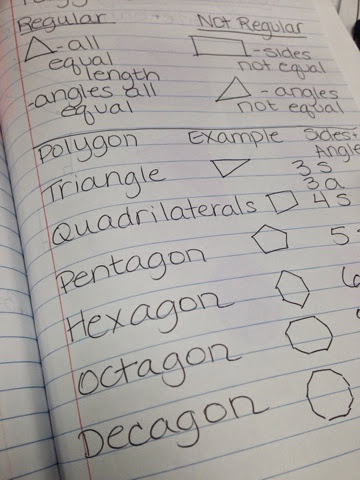 Regular Not Regular
-all equal length -sides not equal
-angles all equal -angles not equal
Polygon Example Sides+ Angle
Triangle 3s 3a
Quadrilaterals 4s
Pentagon 5
Hexagon
Octagon
Decagon